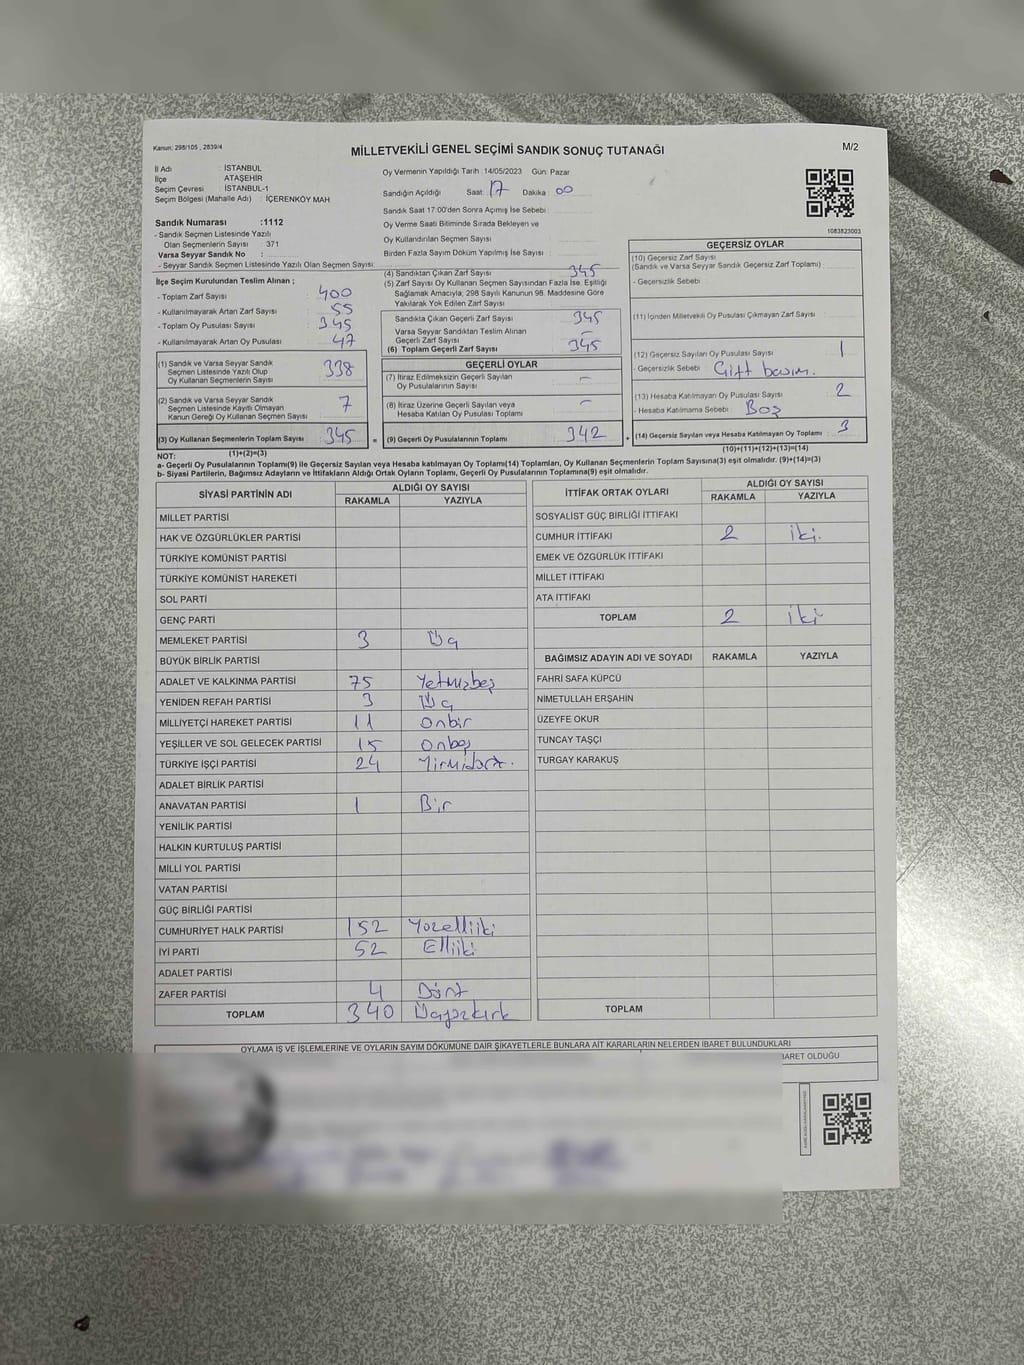 Kanun: 298/105 , 2839/4
MİLLETVEKİLİ GENEL SEÇİMİ SANDIK SONUÇ TUTANAĞI
M/2
İl Adı : İSTANBUL
İlçe ATAŞEHİR
Seçim Çevresi : İSTANBUL-1
Seçim Bölgesi (Mahalle Adı) : İÇERENKÖY MAH
Sandık Numarası :1112
- Sandık Seçmen Listesinde Yazılı
Olan Seçmenlerin Sayısı 371
Varsa Seyyar Sandık No :
- Seyyar Sandık Seçmen Listesinde Yazılı Olan Seçmen Sayısı:
Oy Vermenin Yapıldığı Tarih :14/05/2023 Gün: Pazar
Sandığın Açıldığı Saat: 17 Dakika 00
Sandık Saat 17:00'den Sonra Açımış İse Sebebi :
Oy Verme Saati Bitiminde Sırada Bekleyen ve
Oy Kullandırılan Seçmen Sayısı
Birden Fazla Sayım Döküm Yapılmış İse Sayısı :
1083823003
İlçe Seçim Kurulundan Teslim Alınan ;
- Toplam Zarf Sayısı : 400
- Kullanılmayarak Artan Zarf Sayısı : 55
- Toplam Oy Pusulası Sayısı : 345
- Kullanılmayarak Artan Oy Pusulası : 47
(1) Sandık ve Varsa Seyyar Sandık
Seçmen Listesinde Yazılı Olup
Oy Kullanan Seçmenlerin Sayısı 338
(2) Sandık ve Varsa Seyyar Sandık
Seçmen Listesinde Kayıtlı Olmayan
Kanun Gereği Oy Kullanan Seçmen Sayısı 7
(3) Oy Kullanan Seçmenlerin Toplam Sayısı 345
(1)+(2)=(3)
(4) Sandıktan Çıkan Zarf Sayısı 345
(5) Zarf Sayısı Oy Kullanan Seçmen Sayısından Fazla İse, Eşitliği
Sağlamak Amacıyla, 298 Sayılı Kanunun 98. Maddesine Göre
Yakılarak Yok Edilen Zarf Sayısı
Sandıkta Çıkan Geçerli Zarf Sayısı 345
Varsa Seyyar Sandıktan Teslim Alınan
Geçerli Zarf Sayısı –
(6) Toplam Geçerli Zarf Sayısı 345
GEÇERLİ OYLAR
(7) İtiraz Edilmeksizin Geçerli Sayılan
Oy Pusulalarının Sayısı –
(8) İtiraz Üzerine Geçerli Sayılan veya
Hesaba Katılan Oy Pusulası Toplamı –
= (9) Geçerli Oy Pusulalarının Toplamı 342 +
GEÇERSİZ OYLAR
(10) Geçersiz Zarf Sayısı
(Sandık ve Varsa Seyyar Sandık Geçersiz Zarf Toplamı)
- Geçersizlik Sebebi
(11) İçinden Milletvekili Oy Pusulası Çıkmayan Zarf Sayısı
(12) Geçersiz Sayılan Oy Pusulası Sayısı 1
- Geçersizlik Sebebi Çift basım.
(13) Hesaba Katılmayan Oy Pusulası Sayısı 2
- Hesaba Katılmama Sebebi Boş
(14) Geçersiz Sayılan veya Hesaba Katılmayan Oy Toplamı 3
(10)+(11)+(12)+(13)=(14)
NOT:
a- Geçerli Oy Pusulalarının Toplamı(9) ile Geçersiz Sayılan veya Hesaba katılmayan Oy Toplamı(14) Toplamları, Oy Kullanan Seçmenlerin Toplam Sayısına(3) eşit olmalıdır. (9)+(14)=(3)
b- Siyasi Partilerin, Bağımsız Adayların ve İttifakların Aldığı Ortak Oyların Toplamı, Geçerli Oy Pusulalarının Toplamına(9) eşit olmalıdır.
SİYASİ PARTİNİN ADI ALDIĞI OY SAYISI
RAKAMLA YAZIYLA
MİLLET PARTİSİ
HAK VE ÖZGÜRLÜKLER PARTİSİ
TÜRKİYE KOMÜNİST PARTİSİ
TÜRKİYE KOMÜNİST HAREKETİ
SOL PARTİ
GENÇ PARTİ
MEMLEKET PARTİSİ 3 Üç
BÜYÜK BİRLİK PARTİSİ
ADALET VE KALKINMA PARTİSİ 75 Yetmişbeş
YENİDEN REFAH PARTİSİ 3 Üç
MİLLİYETÇİ HAREKET PARTİSİ 11 Onbir
YEŞİLLER VE SOL GELECEK PARTİSİ 15 Onbeş
TÜRKİYE İŞÇİ PARTİSİ 24 Yirmidört.
ADALET BİRLİK PARTİSİ
ANAVATAN PARTİSİ 1 Bir
YENİLİK PARTİSİ
HALKIN KURTULUŞ PARTİSİ
MİLLİ YOL PARTİSİ
VATAN PARTİSİ
GÜÇ BİRLİĞİ PARTİSİ
CUMHURİYET HALK PARTİSİ 152 Yüzelliiki
İYİ PARTİ 52 Elliiki
ADALET PARTİSİ
ZAFER PARTİSİ 4 Dört
TOPLAM 340 Üçyüzkırk
İTTİFAK ORTAK OYLARI ALDIĞI OY SAYISI
RAKAMLA YAZIYLA
SOSYALİST GÜÇ BİRLİĞİ İTTİFAKI
CUMHUR İTTİFAKI 2 iki.
EMEK VE ÖZGÜRLÜK İTTİFAKI
MİLLET İTTİFAKI
ATA İTTİFAKI
TOPLAM 2 iki
BAĞIMSIZ ADAYIN ADI VE SOYADI RAKAMLA YAZIYLA
FAHRİ SAFA KÜPCÜ
NİMETULLAH ERŞAHİN
ÜZEYFE OKUR
TUNCAY TAŞÇI
TURGAY KARAKUŞ
TOPLAM
OYLAMA İŞ VE İŞLEMLERİNE VE OYLARIN SAYIM DÖKÜMÜNE DAİR ŞİKAYETLERLE BUNLARA AİT KARARLARIN NELERDEN İBARET BULUNDUKLARI
BARET OLDUĞU